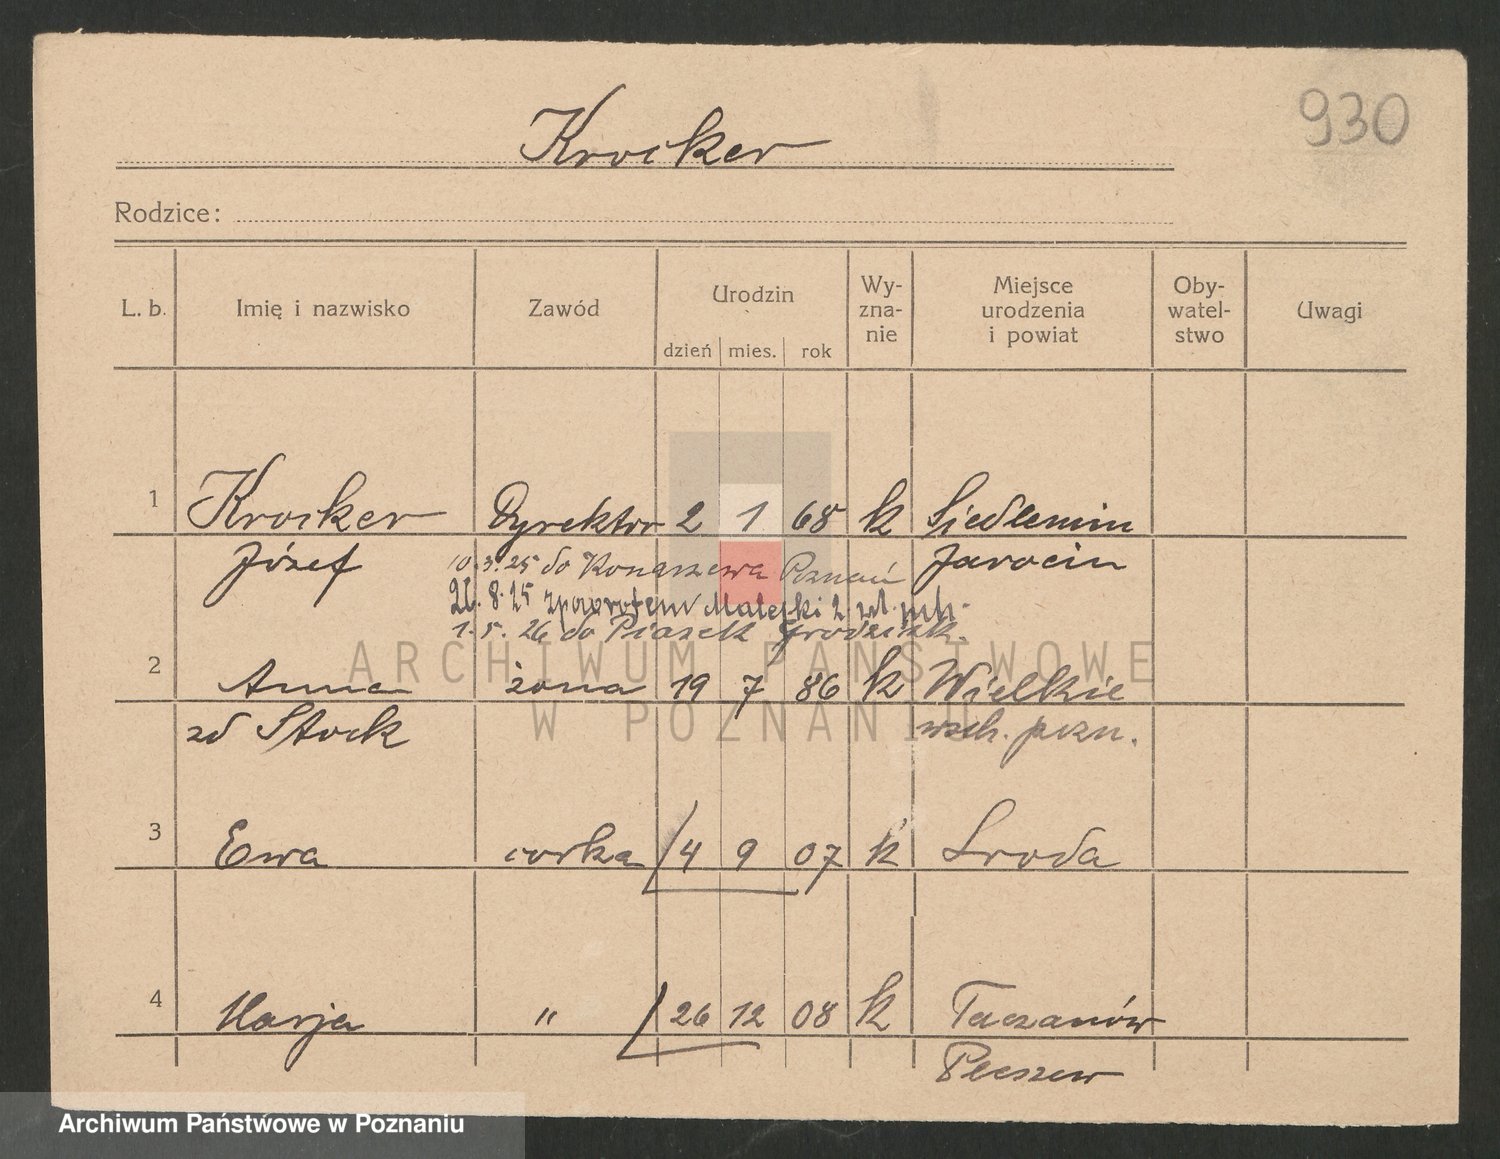 930
Krocker
Rodzice:
L. b. Imię i nazwisko Zawód Urodzin dzień mies. rok Wy-zna-nie Miejsce urodzenia i powiat Oby-watel-stwo Uwagi
1 Krocker Dyrektor 2 1 68 k Siedlemin
Józef Jarocin
10.3.25 do Konarzewa Poznań
26.8.25 zpowrotem Małejki 2
1.5.26 do Piasek Grodzisk.
2 Anna żona 19 7 86 k Wielkie
zd Stock wsch. pozn.
3 Ewa corka 4 9 07 k Sroda
4 Marja " 26 12 08 k Taczanów
Pleszew
ARCHIWUM PAŃSTWOWE
W POZNANIU
Archiwum Państwowe w Poznaniu